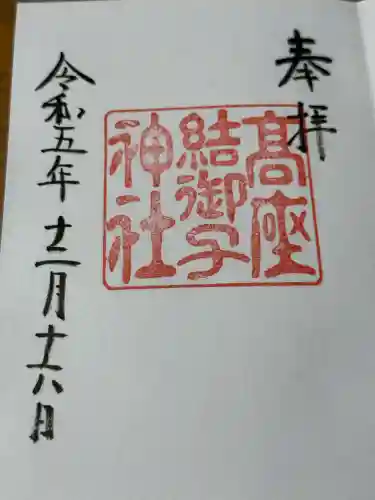 奉拝
髙座
結御子
神社
令和五年十二月十六日